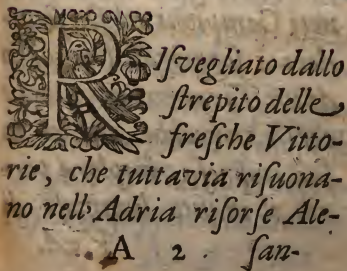 RIſvegliato dallo
ſtrepito delle
freſche Vitto-
rie, che tuttavia riſuona-
no nell'Adria riſorſe Ale-
A 2 ſan-